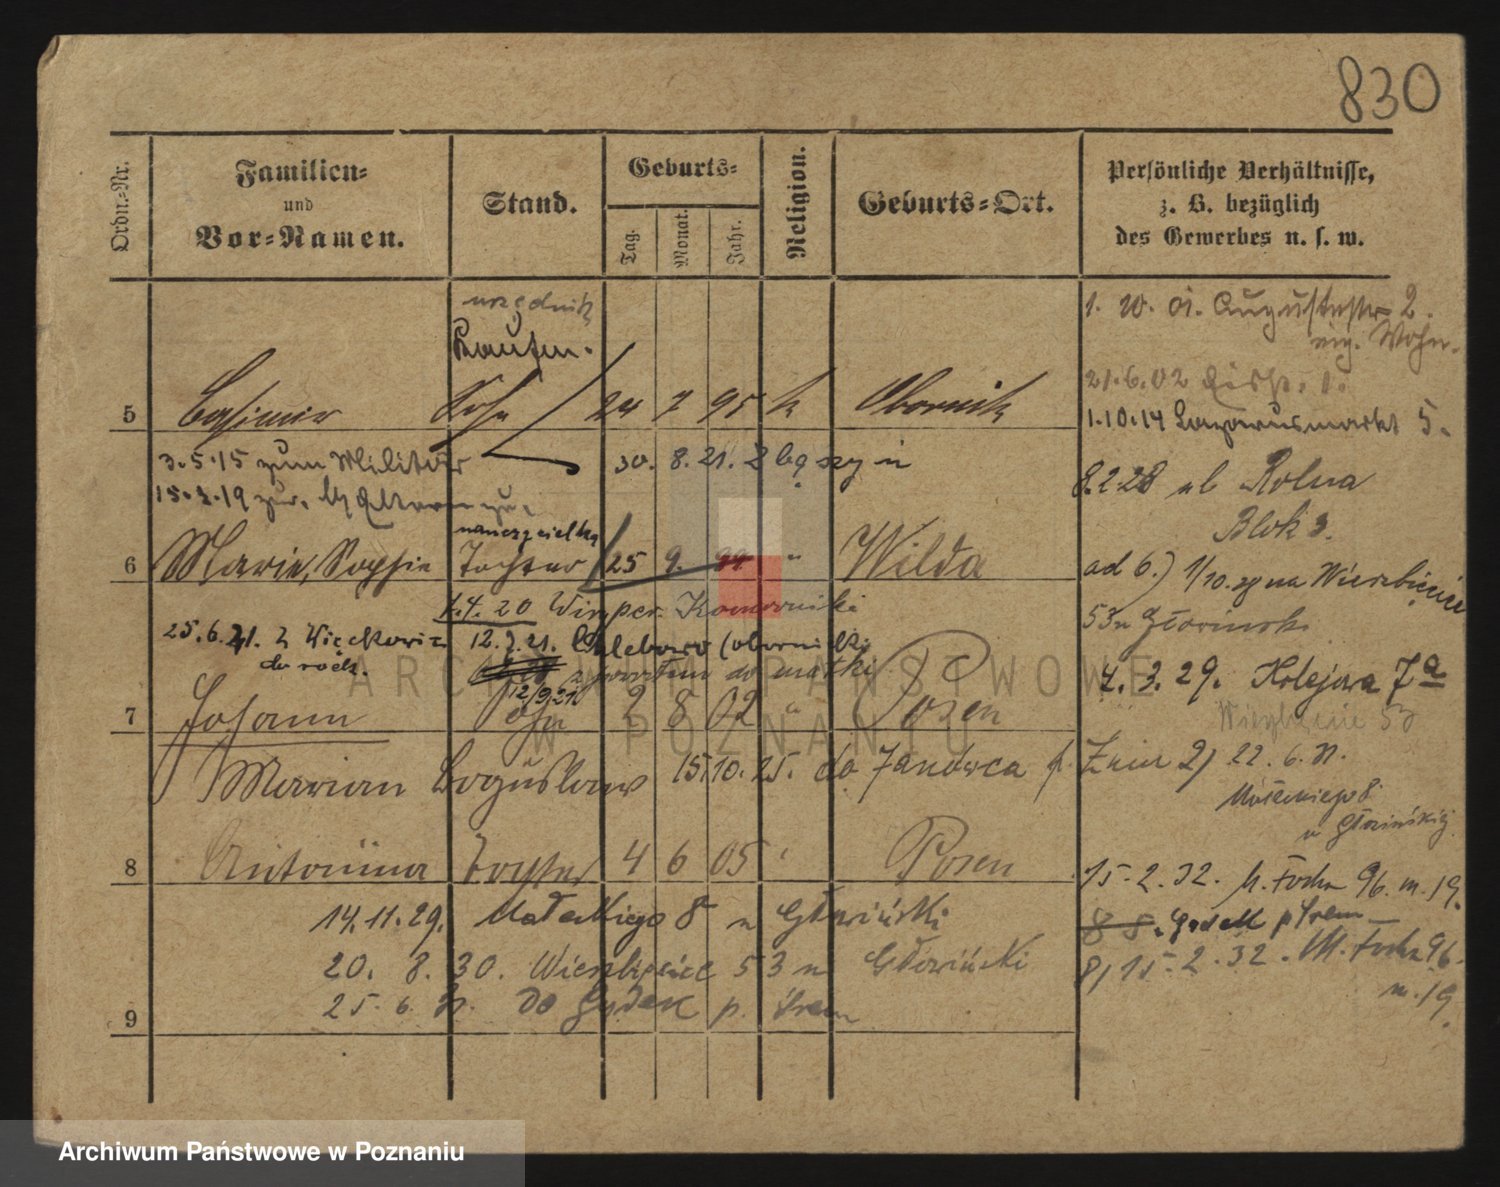 830
Ordn.-Nr.
Familien-
und
Vor-Namen.
Stand.
Geburts-
Tag.
Monat.
Jahr.
Religion.
Geburts-Ort.
Persönliche Verhältnisse,
z. B. bezüglich
des Gewerbes u. s. w.
urzędnik
Kaufm.
1. 10. 01. Augustastr. 2.
Wohn.
21.6.02
5 Casimir Sohn 24 7 95 k Obornik
1.10.14 Lazarusmarkt 5.
3.5.15 zum Militär
30. 8. 21. Zbąszyń
8.2.28 ul Rolna
Blok 3.
15.2.19 zur.
nauczycielka
6 Marie, Sophie Tochter 25 9. 99 " Wilda
ad 6.) 1/10. na Wierzbięcice
53 u Głowiński
1.4.20 Komorniki
25.6.21. z Więckowic
12.7.21. Chlebowo (oborniki)
z powrotem do matki
12/9.21
4. 3. 29. Kolejowa 7a
7 Johann Sohn 2 8 02 " Posen
Wierzbięcice 53
Marian Bogusław 15.10.25. do Janówca p. Żnin
2) 22. 6. 31.
Małeckiego 8
u Głowińskiej
8 Antonina Tochter 4 6 05 " Posen
15. 2. 32. M. Focha 96. m. 19.
14. 11. 29. Małeckiego 8 u Głowiński
p Śrem
20. 8. 30. Wierzbięcice 53 u Głowiński
8) 15. 2. 32. M. Focha 96.
m. 19.
25. 6. 31. do p. Śrem
9
ARCHIWUM PAŃSTWOWE
W POZNANIU
Archiwum Państwowe w Poznaniu